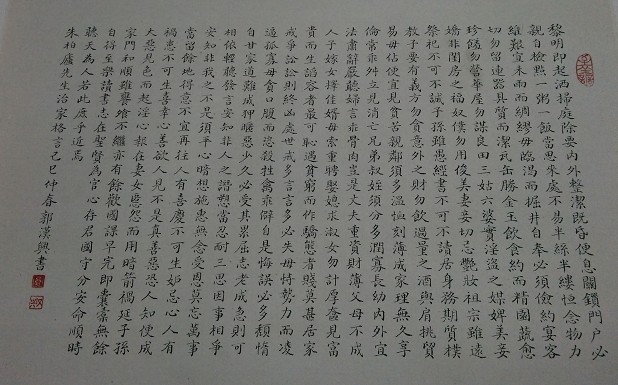 黎明即起洒掃庭除要內外整潔既昏便息關鎖門户必
親自檢點一粥一飯當思來處不易半絲半縷恒念物力
維艱宜未雨而綢繆毋臨渴而掘井自奉必須儉約宴客
切勿留連器具質而潔瓦缶勝金玉飲食約而精園蔬愈
珍饈勿營華屋勿謀良田三姑六婆實淫盜之媒婢美妾
嬌非閨房之福奴僕勿用俊美妻妾切忌艷妝祖宗雖遠
祭祀不可不誠子孫雖愚經書不可不讀居身務期質樸
教子要有義方勿貪意外之財勿飲過量之酒與肩挑貿
易毋佔便宜見貧苦親鄰須多温恤刻薄成家理無久享
倫常乖舛立見消亡兄弟叔姪須分多潤寡長幼內外宜
法肅辭嚴聽婦言乖骨肉豈是丈夫重資財薄父母不成
人子嫁女擇佳婿毋索重聘娶媳求淑女勿計厚奩見富
貴而生諂容者最可恥遇貧窮而作驕態者賤莫甚居家
戒爭訟訟則終凶處世戒多言言多必失毋恃勢力而凌
逼孤寡毋貪口腹而恣殺牲禽乖僻自是悔誤必多頹惰
自甘家道難成狎暱惡少久必受其累屈志老成急則可
相依輕聽發言安知非人之譖愬當忍耐三思因事相爭
安知非我之不是須平心暗想施惠無念受恩莫忘萬事
當留餘地得意不宜再往人有喜慶不可生妒忌心人有
禍患不可生喜幸心善欲人見不是真善惡恐人知便成
大惡見色而起淫心報在妻女匿怨而用暗箭禍延子孫
家門和順雖饔飧不繼亦有餘歡國課早完即囊橐無餘
自得至樂讀書志在聖賢為官心存君國守分安命順時
聽天為人若此庶乎近焉
朱柏廬先生治家格言己巳仲春郭漢興書